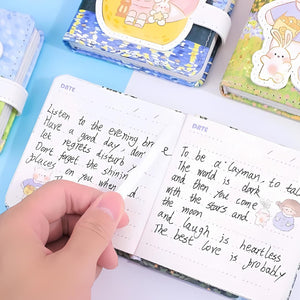 DATE
Listen to the evening
Have a good day, don'
let regrets disturb
Don't forget the shinin
places
on you when
DATE
To be a layman, to tal
The world is dark
and then you come
with the stars and
the moon
and laugh is heartless
The best love is probably